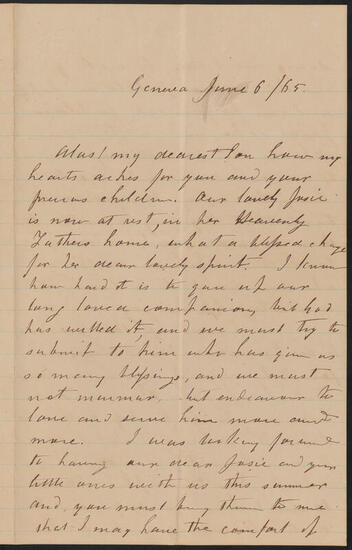 Geneva June 6 /65.
Alas! my dearest Son how my
hearts aches for you and your
precious children. Our lovely Josie
is now at rest, in her Heavenly
Fathers home, what a blessed change
for her dear lovely spirit. I know
how hard it is to give up our
long loved companion, but God
has willed it, and we must try to
submit to him who has given us
so many blessings, and we must
not murmur, but endeavour to
love and serve him more and
more. I was looking forward
to having our dear Josie and your
little ones with us this summer
and, you must bring them to me
that I may have the comfort of